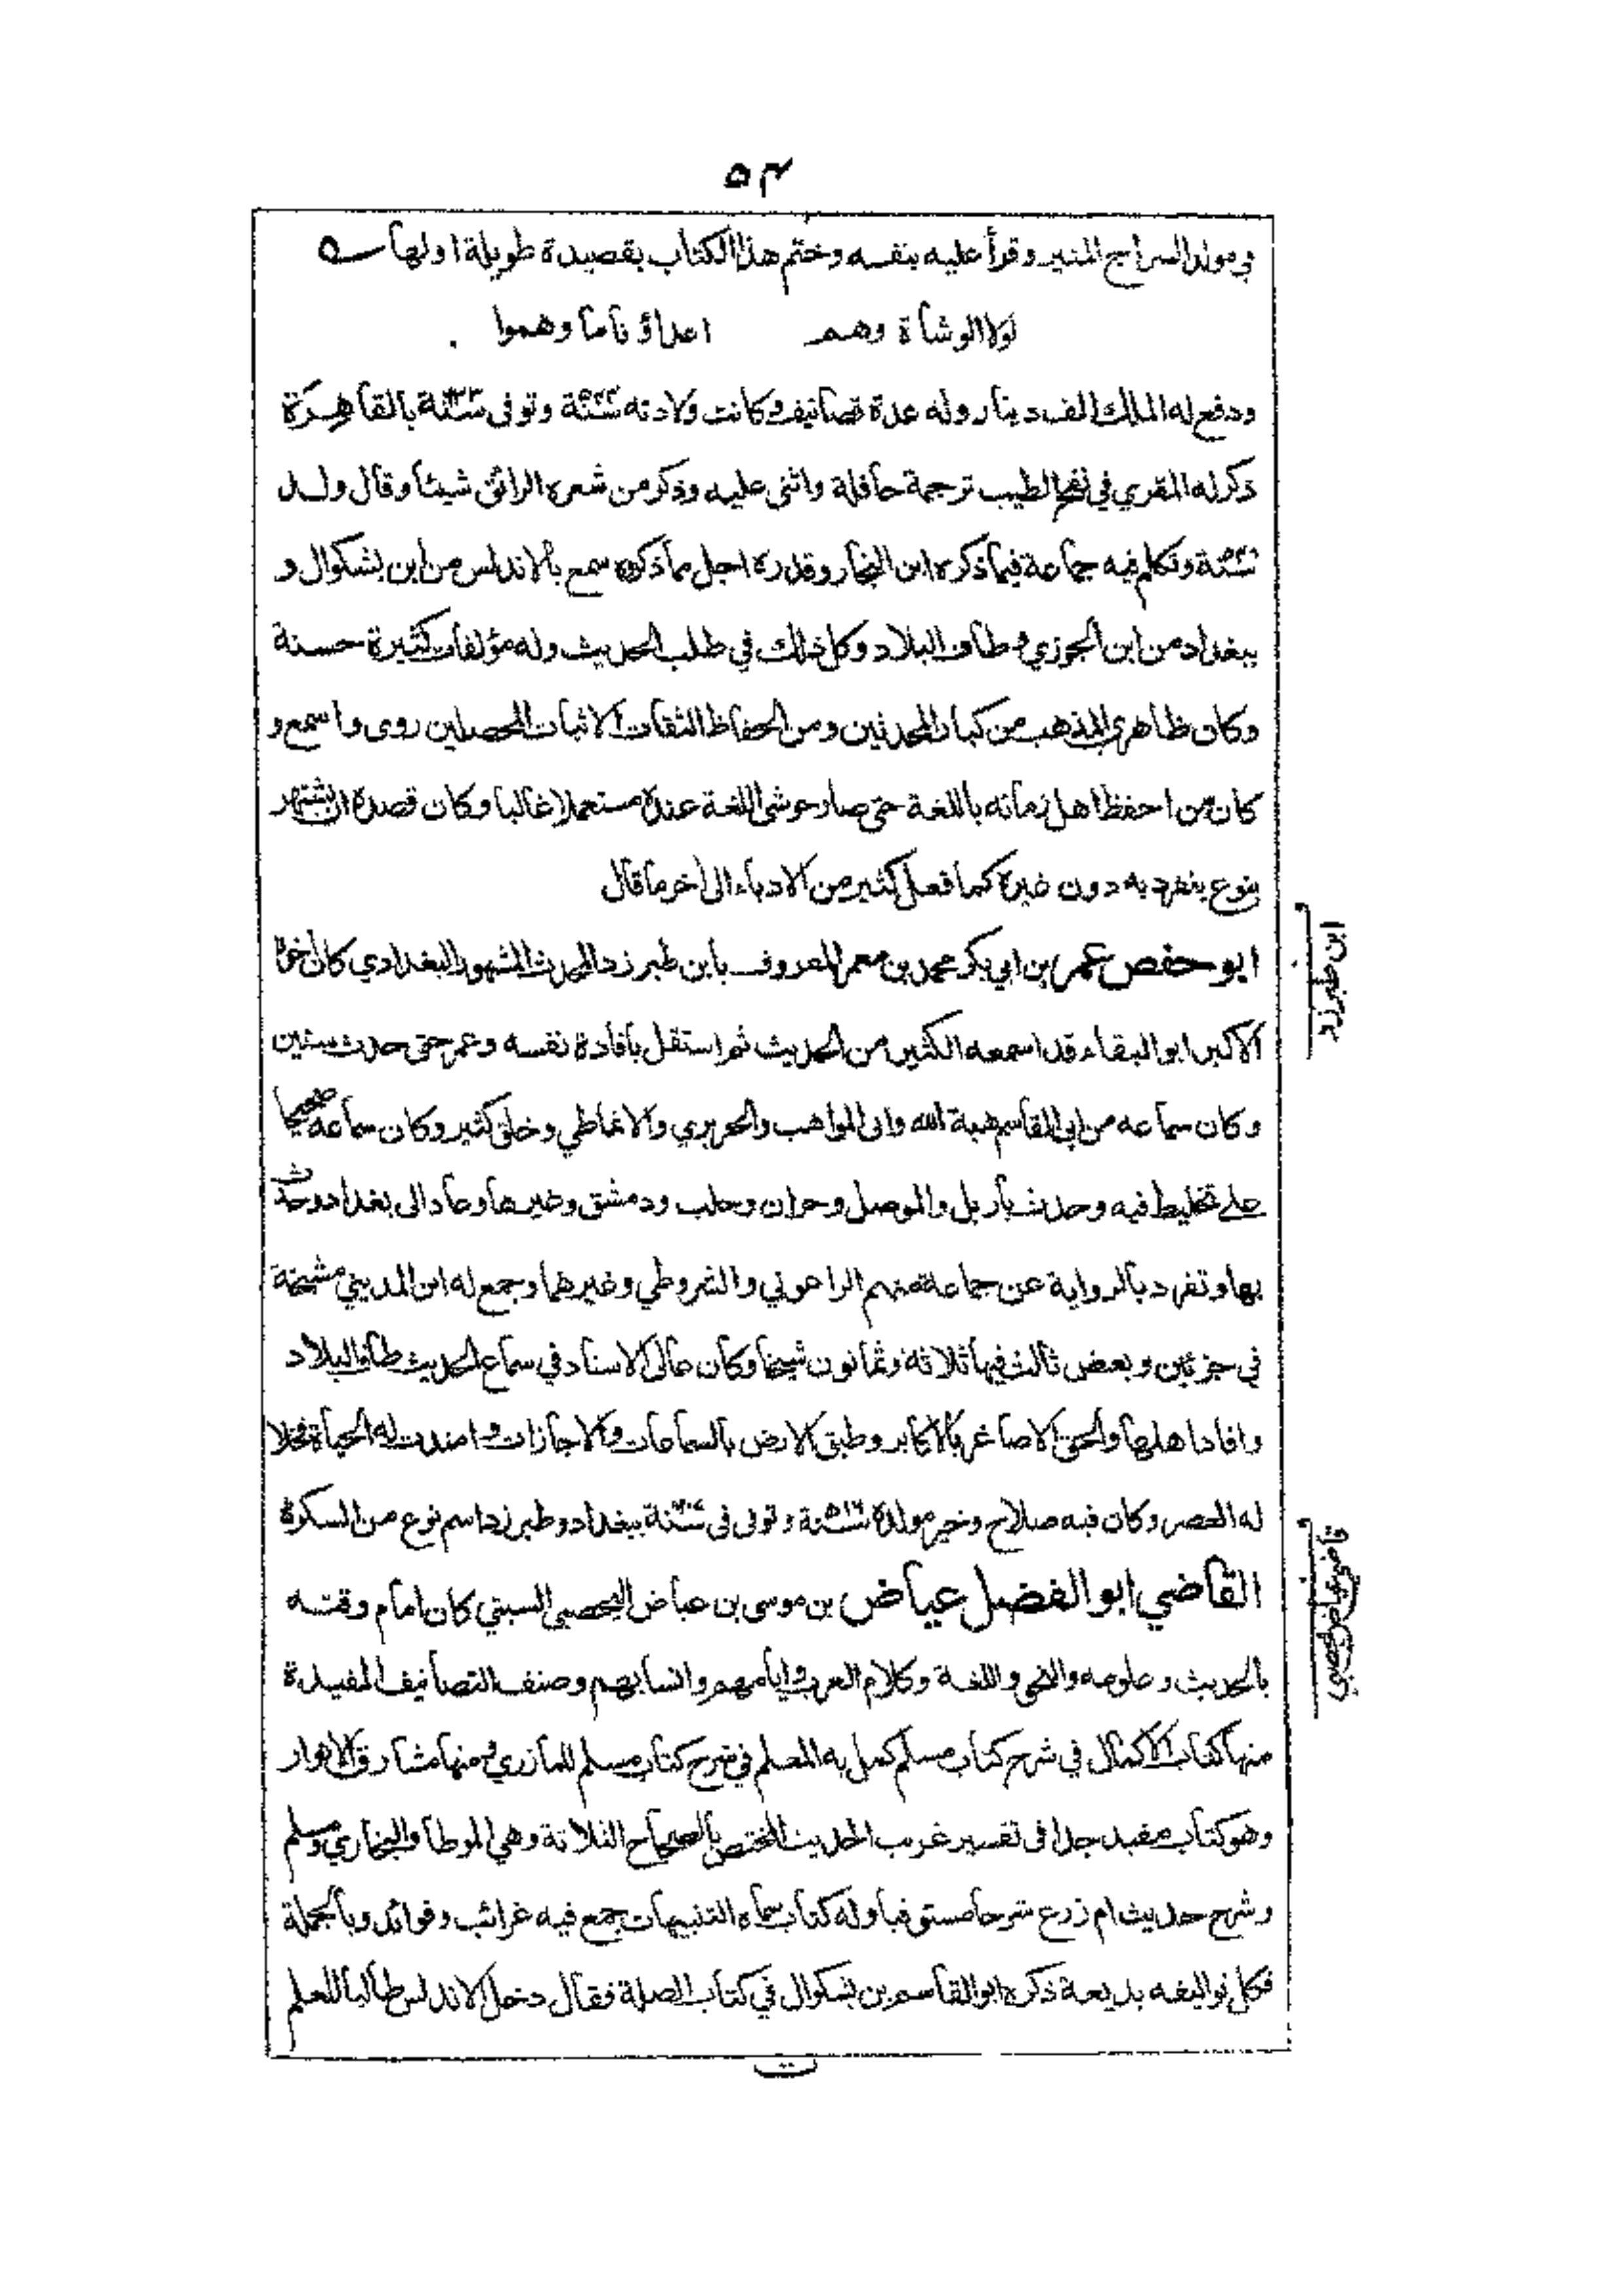 ٥٤
في مولد السراج المنير وقرأ عليه بنفسه وختم هذا الكتاب بقصيدة طويلة اولها ــه
لولا الوشاة وهم اعداؤنا ما وهموا .
ودفع له الملك الف دينار وله عدة تصانيف وكانت ولادته وتوفى بالقاهرة
ذكر له المقري في نفح الطيب ترجمة حافلة واثنى عليه وذكر من شعره الرائق شيئا وقال ولد
وتكلم فيه جماعة فيما ذكره ابن النجار وقدره اجل مما ذكروه سمع بالاندلس من ابن بشكوال و
ببغداد من ابن الجوزي وطاف البلاد وكل ذلك في طلب الحديث وله مؤلفات كثيرة حسنة
وكان ظاهري المذهب من كبار المحدثين ومن الحفاظ الثقات الاثبات المحصلين روى واسمع و
كان من احفظ اهل زمانه باللغة حتى صار حوشى اللغة عنده مستعملا غالبا وكان قصده ان يشتهر
بنوع ينفرد به دون غيره كما فعل كثير من الادباء الى اخر ما قال
ابن طبرزد
ابو حفص عمر بن ابي بكر محمد بن معمر المعروف بابن طبرزد المحدث المشهور البغدادي كان اخوه
الاكبر ابو البقاء قد اسمعه الكثير من الحديث ثم استقل بافادة نفسه وعمر حتى حدث سنين
وكان سماعه من ابي القاسم هبة الله وابى المواهب والحريري والانماطي وخلق كثير وكان سماعه صحيحا
على تخليط فيه وحدث باربل والموصل وحران وحلب ودمشق وغيرها وعاد الى بغداد وحدث
بها وتفرد بالرواية عن جماعة منهم الراغوني والشروطي وغيرهما وجمع له ابن المديني مشيخة
في جزئين وبعض ثالث فيها ثلاثة وثمانون شيخا وكان عالى الاسناد في سماع الحديث طاف البلاد
وافاد اهلها والحق الاصاغر بالاكابر وطبق الارض بالسماعات والاجازات وامتدت له الحياة فخلا
له العصر وكان فيه صلاح وخير مولده وتوفى فى ببغداد وطبرزد اسم نوع من السكرة
قاضي عياض يحصبي
القاضي ابو الفضل عياض بن موسى بن عياض اليحصبي السبتي كان امام وقته
بالحديث وعلومه والنحو واللغة وكلام العرب وايامهم وانسابهم وصنف التصانيف المفيدة
منها كتاب الاكمال في شرح كتاب مسلم كمل به المعلم في شرح كتاب مسلم للمازري ومنها مشارق الانوار
وهو كتاب مفيد جدا فى تفسير غريب الحديث المختص بالصحاح الثلاثة وهي الموطا والبخاري ومسلم
وشرح حديث ام زرع شرحا مستوفيا وله كتاب سماه التنبيهات جمع فيه غرائب وفوائد وبالجملة
فكل تواليفه بديعة ذكره ابو القاسم بن بشكوال في كتاب الصلة فقال دخل الاندلس طالبا للعلم